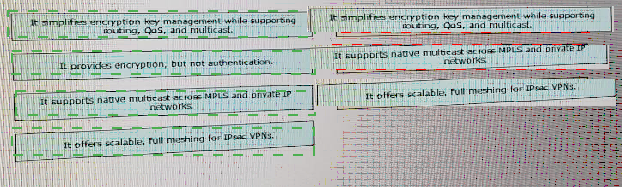 It simplifies encryption key management while supporting
routing, QoS, and multicast.
It provides encryption, but not authentication.
It supports native multicast across MPLS and private IP
networks.
It offers scalable, full meshing for IPsec VPNs.
It simplifies encryption key management while supporting
routing, QoS, and multicast.
It supports native multicast across MPLS and private IP
networks.
It offers scalable, full meshing for IPsec VPNs.